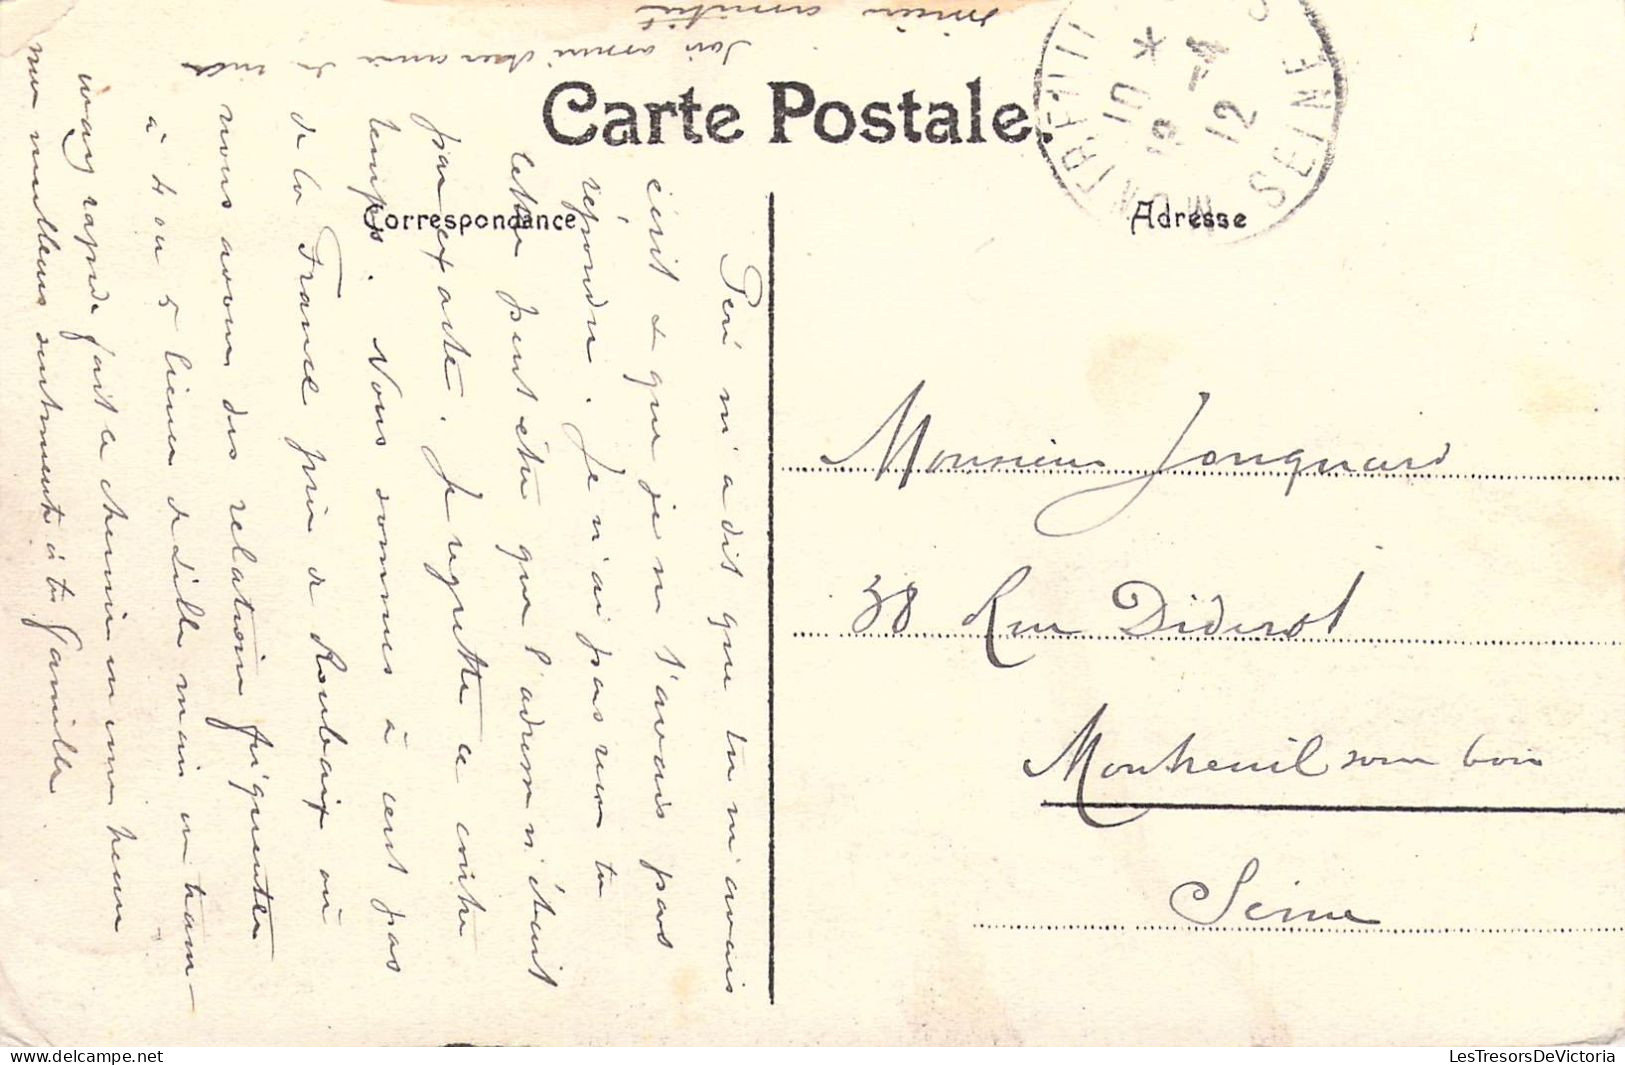 Carte Postale.
Correspondance
Adresse
MONTREUIL
10 *
18 - 4
12
SEINE
Péré m'a dit que tu m'avais
écrit & que je ne t'avais pas
répondu. Je n'ai pas reçu ta
lettre peut être que l'adresse n'était
pas exacte. Je regrette ce contre
temps. Nous sommes à cent pas
de la France près de Roubaix où
nous avons des relations fréquentes
à 4 ou 5 lieues de Lille mais un tram-
way rapide fait le chemin en une heure
mes meilleurs sentiments à ta famille
Sois assuré cher ami de ma
sincère amitié
Monsieur Jonquard
38 Rue Diderot
Montreuil sous bois
Seine
LesTresorsDeVictoria
delcampe.net